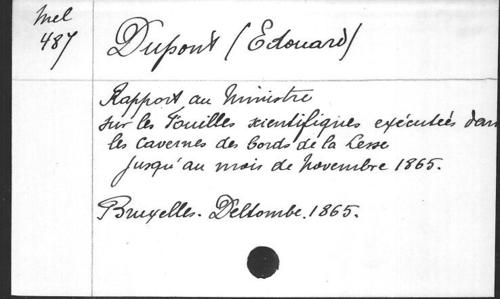 Mel
487
Dupont (Edouard)
Rapport au Ministre
sur les Fouilles scientifiques exécutées dans
les cavernes des bords de la Lesse
jusqu'au mois de Novembre 1865.
Bruxelles. Deltombe. 1865.